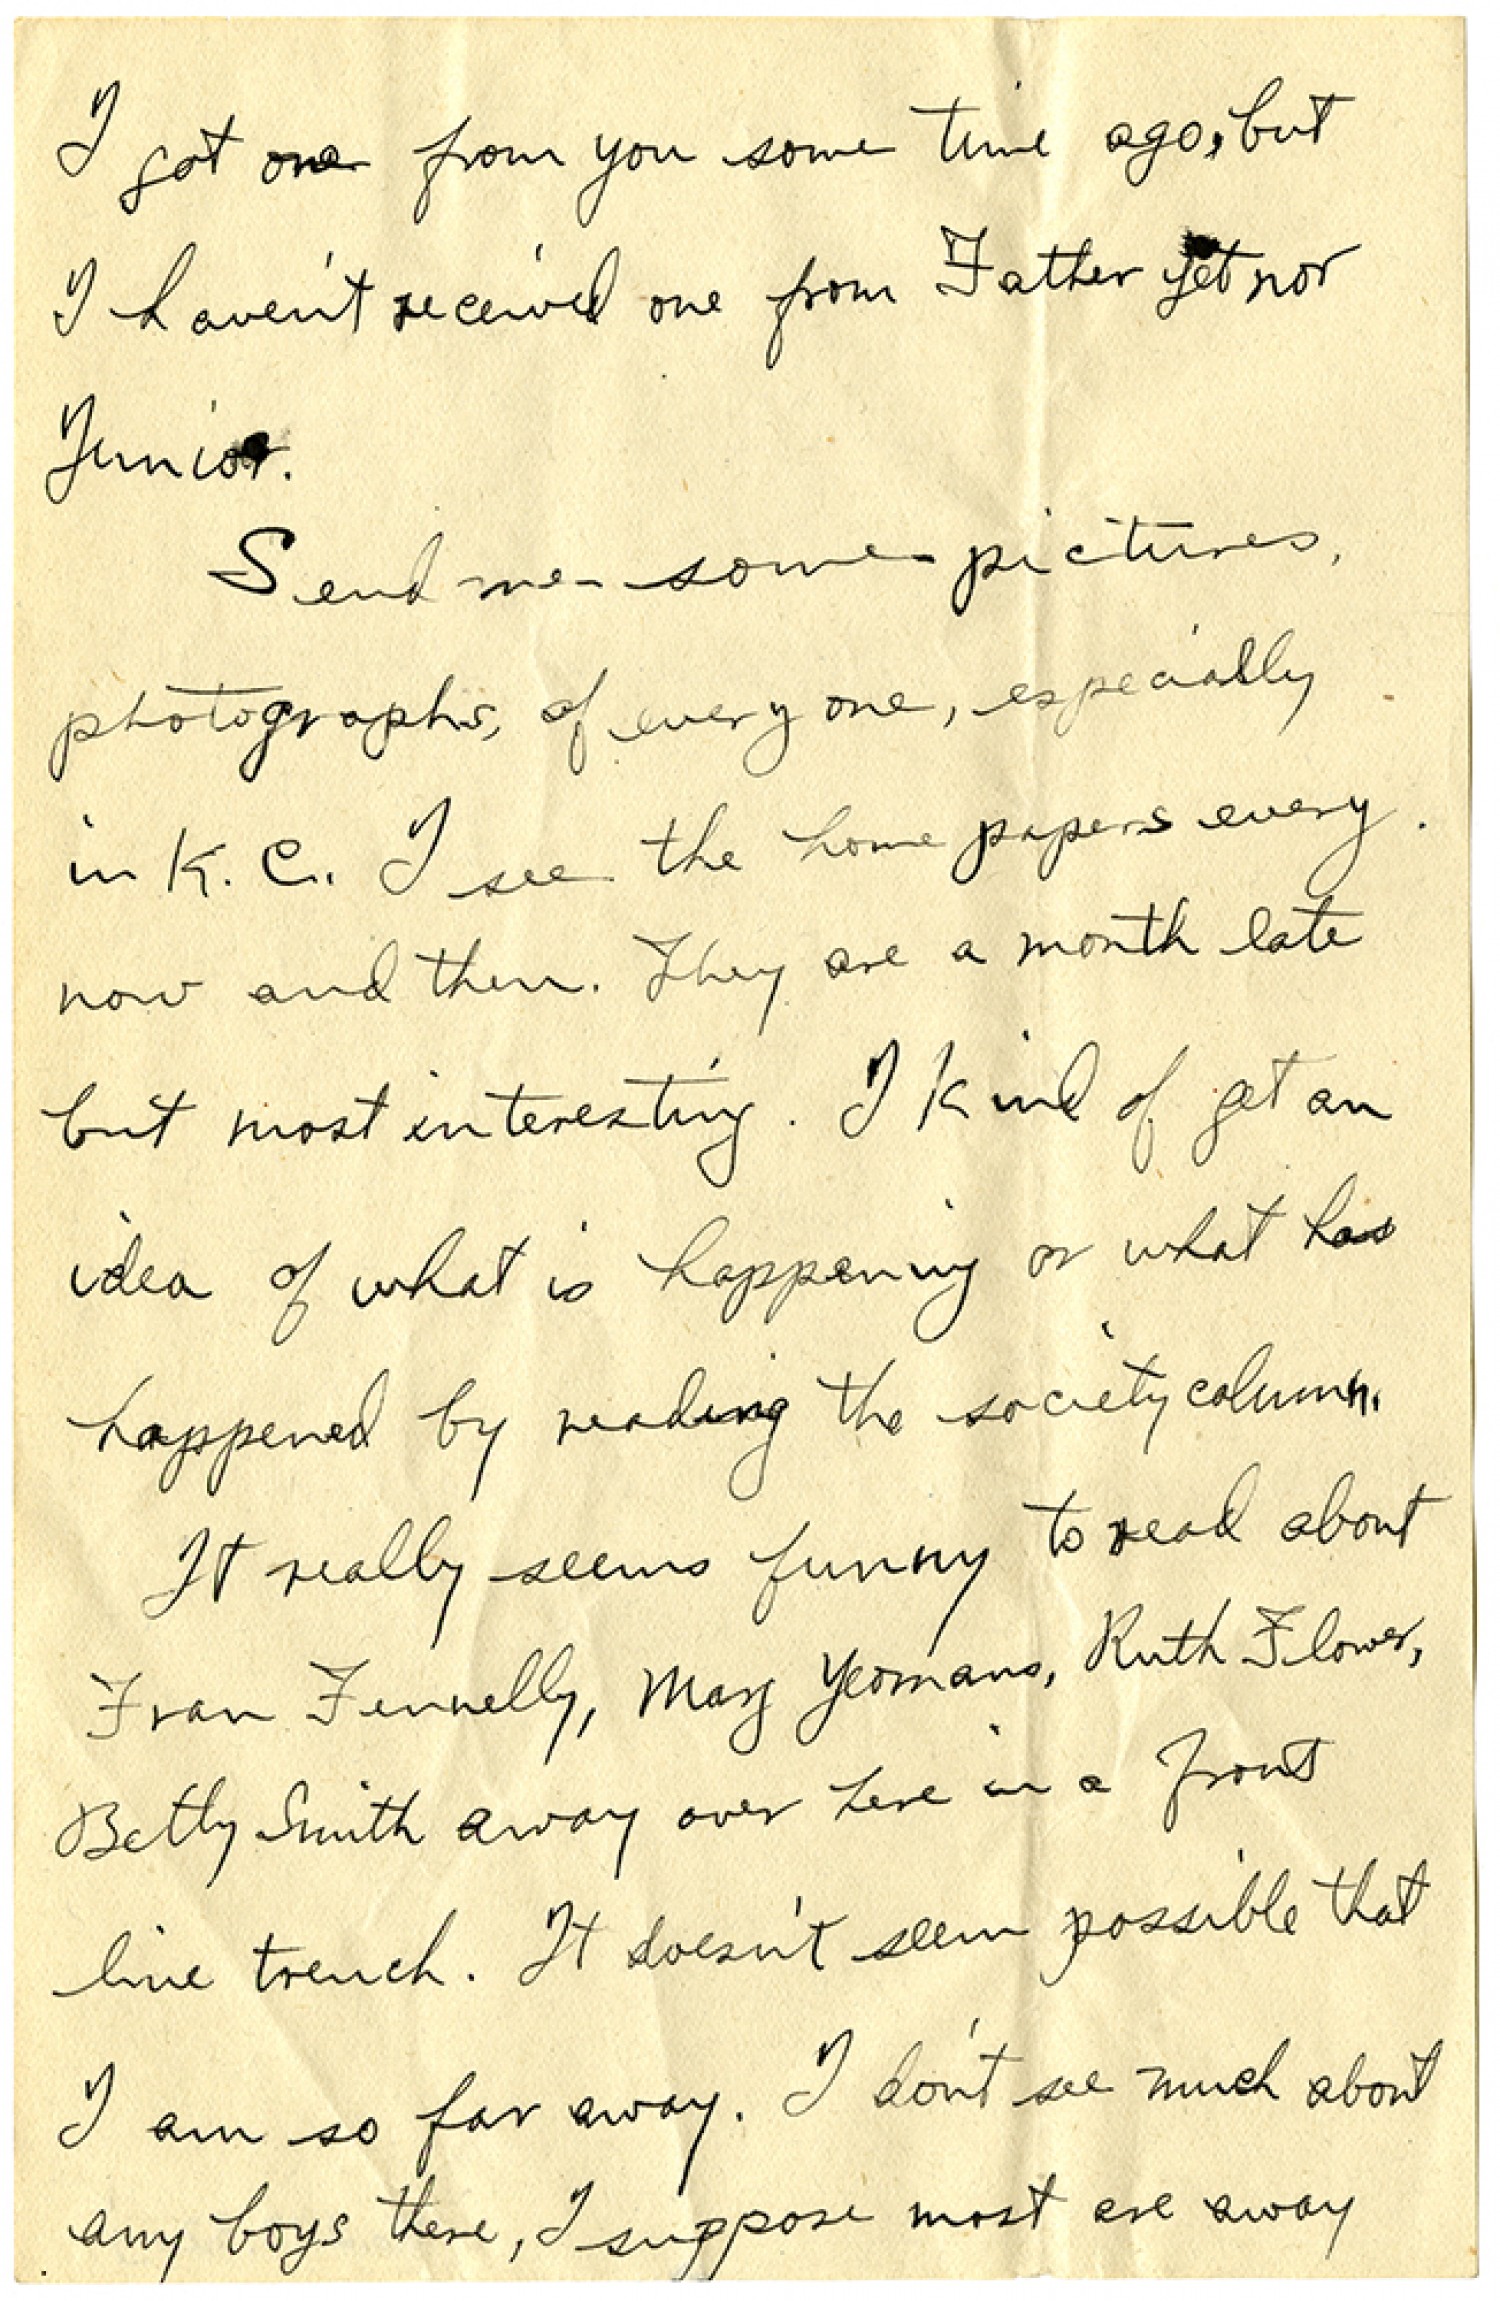 I got one from you some time ago, but
I haven't received one from Father yet nor
Junior.
Send me some pictures,
photographs, of every one, especially
in K.C.. I see the home papers every
now and then. They are a month late
but most interesting. I kind of get an
idea of what is happening or what has
happened by reading the society column.
It really seems funny to read about
Fran Fennelly, Mary Yeomans, Ruth Flower,
Betty Smith away over here in a front
line trench. It doesn't seem possible that
I am so far away. I don't see much about
any boys there, I suppose most are away